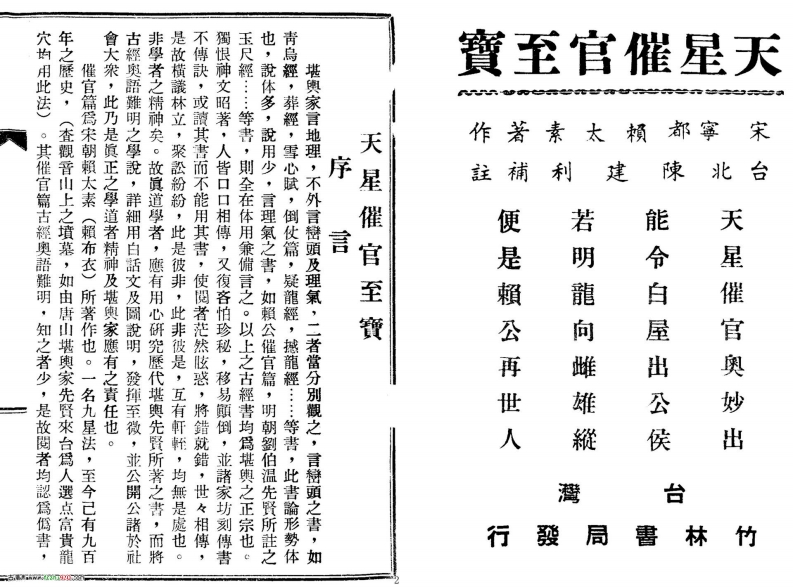 天星催官至寶
宋寧都賴太素著作
台北陳建利補註
天星催官奧妙出
能令白屋出公侯
若明龍向雌雄縱
便是賴公再世人
台灣
竹林書局發行
天星催官至寶
序言
堪輿家言地理，不外言巒頭及理氣，二者當分別觀之，言巒頭之書，如
青烏經，葬經，雪心賦，倒仗篇，疑龍經，撼龍經……等書，此書論形勢体
也，說体多，說用少，言理氣之書，如賴公催官篇，明朝劉伯温先賢所註之
玉尺經……等書，則全在体用兼備言之。以上之古經書均爲堪輿之正宗也。
獨恨神文昭著，人皆口口相傳，又復吝怕珍秘，移易顚倒，並諸家坊刻傳書
不傳訣，或讀其書而不能用其書，使閱者茫然眩惑，將錯就錯，世々相傳，
是故橫議林立，聚訟紛紛，此是彼非，此非彼是，互有軒輊，均無是處也。
非學者之精神矣。故眞道學者，應有用心研究歷代堪輿先賢所著之書，而將
古經奧語難明之學說，詳細用白話文及圖說明，發揮至微，並公開公諸於社
會大衆，此乃是眞正之學道者精神及堪輿家應有之責任也。
催官篇爲宋朝賴太素（賴布衣）所著作也。一名九星法，至今已有九百
年之歷史，（查觀音山上之墳墓，如由唐山堪輿家先賢來台爲人選点富貴龍
穴均用此法）。其催官篇古經奧語難明，知之者少，是故閱者均認爲僞書，
2